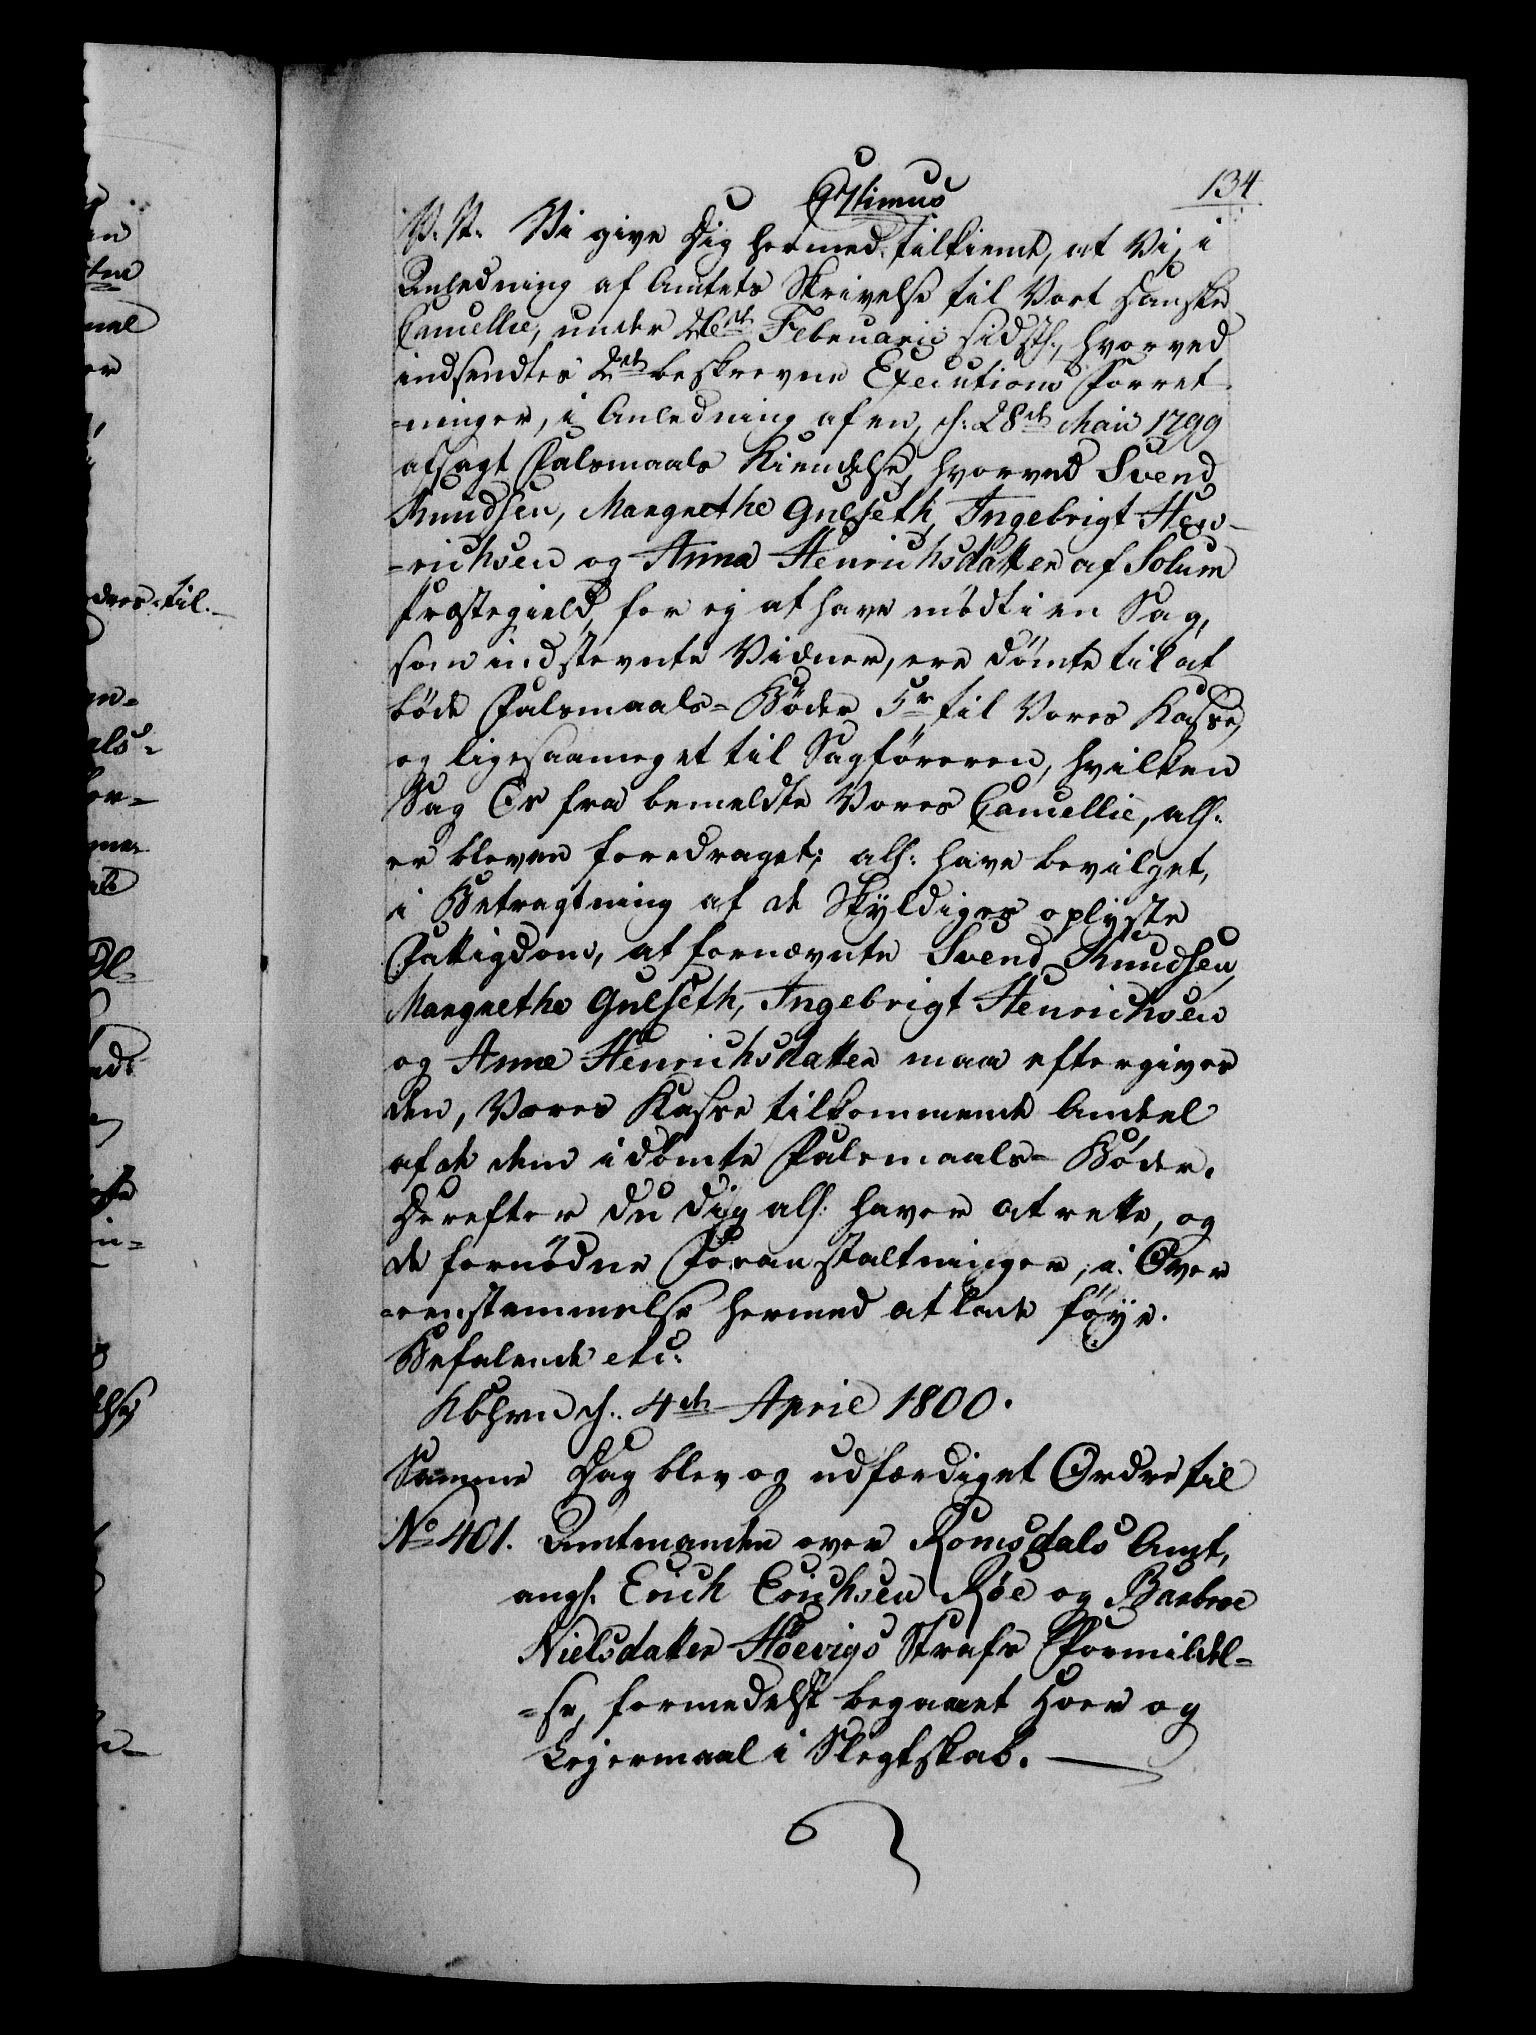 134.
P. P. Vi give Dig hermed tilkiende, at Vi, i
Anledning af Amtets Skrivelse til Vort Danske
Cancellie, under 26de Februarii sidstl., hvorved
indsendtes 2de beskrevne Executions Forret-
-ninger, i Anledning af en, d: 28de Maii 1799
afsagt Falsmaals Kiendelse, hvorved Svend
Knudsen, Margrethe Gulseth, Ingebrigt Hen-
-richsen og Anna Henrichsdatter af Solum
Præstegield, for ej at have mödt i en Sag,
som indstevnte Vidner, ere dömte til at
böde Falsmaals-Böder 5r til Vores Kasse,
og ligesaameget til Sagföreren, hvilken
Sag Os fra bemeldte Vores Cancellie, all:
er bleven foredraget; all: have bevilget,
i Betragtning af de Skyldiges oplyste
Fattigdom, at fornævnte Svend Knudsen,
Margrethe Gulseth, Ingebrigt Henrichsen
og Anne Henrichsdatter maa eftergives
den, Vores Kasse tilkommende Andeel
af de dem idömte Falsmaals-Böder.
Derefter Du Dig all: haver at rette, og
de fornödne Foranstaltninger, i Over
-eenstemmelse hermed at lade föye.
Befalende etc:
Kbhvn d: 4de April 1800.
Samme Dag blev og udfærdiget Ordre til
No 401. Amtmanden over Romsdals Amt,
ang: Erich Erichsen Röe og Barbroe
Nielsdatter Höevigs Strafs Formildel-
-se, formedelst begaaet Hoer og
Lejermaal i Slegtskab.